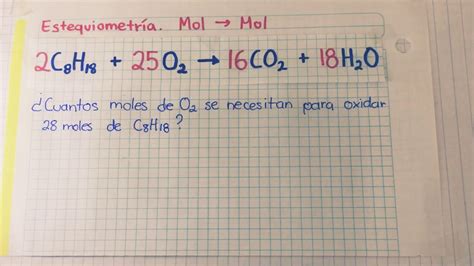 Estequiometría. Mol → Mol
2C₈H₁₈ + 25O₂ → 16CO₂ + 18H₂O
¿Cuantos moles de O₂ se necesitan para oxidar
28 moles de C₈H₁₈?